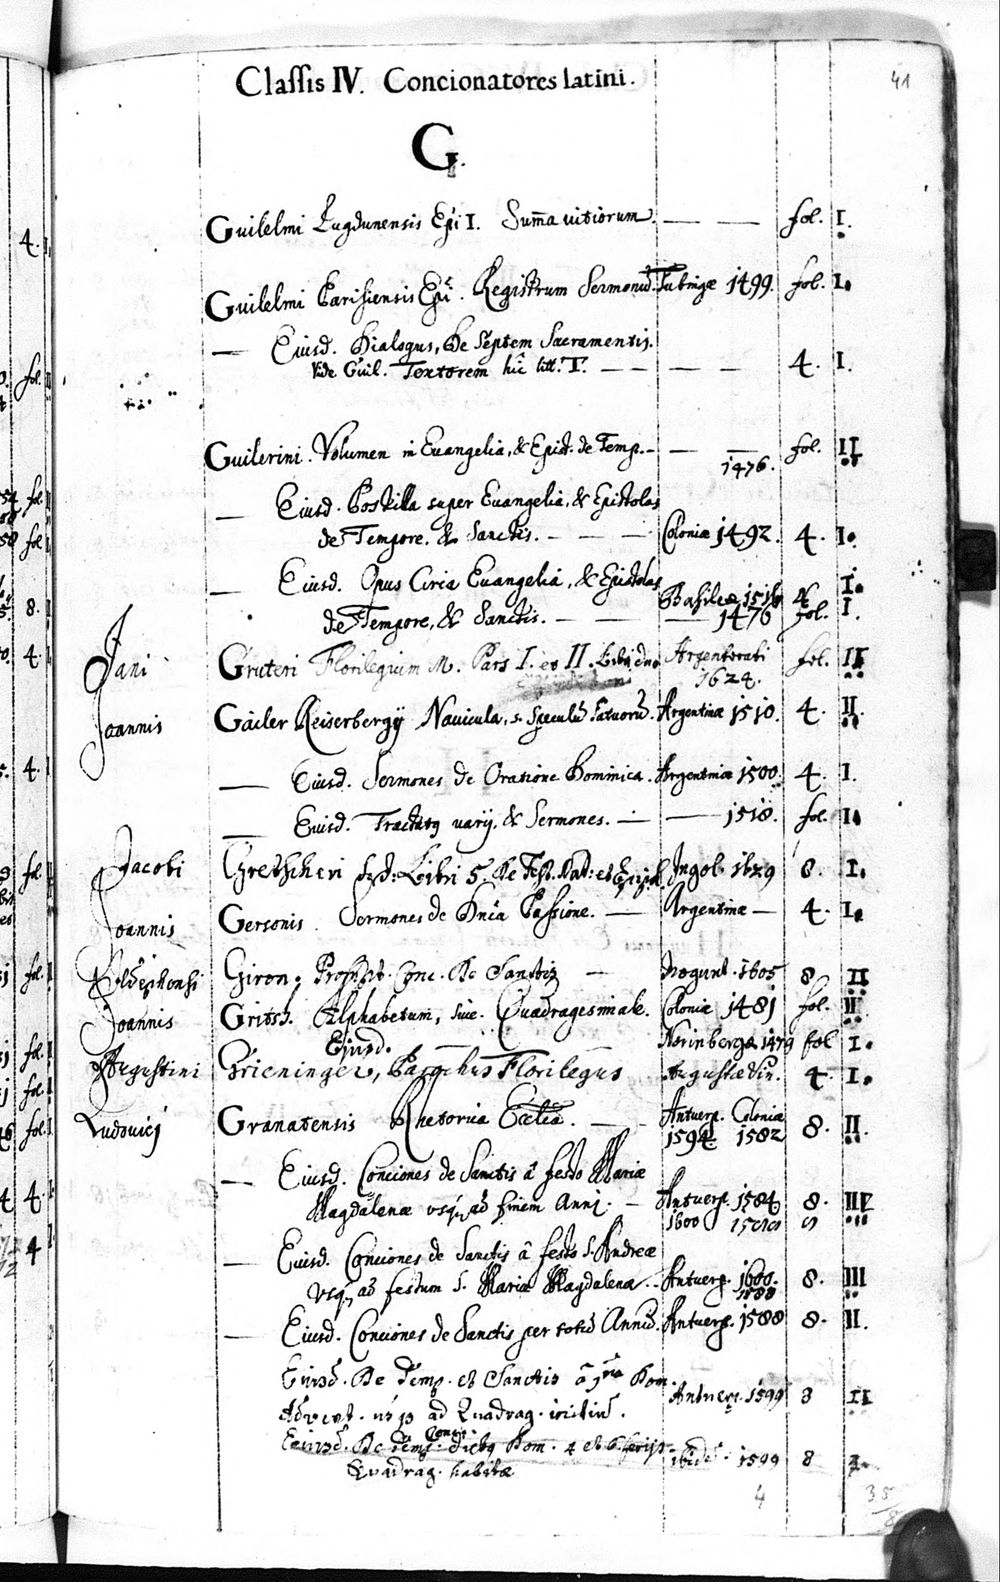 Classis IV. Concionatores latini.
41
G.
Guilelmi Lugdunensis Epi I. Summa vitiorum. — — fol. I.
Guilelmi Parisiensis Epi. Registrum Sermonū. Tubingæ 1499. fol. I.
— Eiusd. Dialogus, De Septem Sacramentis.
Vide Guil. Textorem hic litt. T. — — — — 4. I.
Guilerini. Volumen in Euangelia, & Epist. de Temp. — — 1476. fol. II
— Eiusd. Postilla super Euangelia, & Epistolas
de Tempore, & Sanctis. — — — Coloniæ 1492. 4. I.
— Eiusd. Opus Circa Euangelia, & Epistolas Basileæ 4. I.
de Tempore, & Sanctis. — — — 1476 fol. I.
Jani Gruteri Florilegium M. Pars I. et II. Argentorati fol. II
1624.
Joannis Gailer Keiserbergij Nauicula, s. Speculū Fatuorū. Argentinæ 1510. 4. II.
— Eiusd. Sermones de Oratione Dominica. Argentinæ 1500. 4. I.
— Eiusd. Tractatq varij, & Sermones. — — 1518. fol. I.
Jacobi Gretscheri Libri 5. De Fest. Ingol. 1629 8. I.
Joannis Gersonis. Sermones de Dnica Passione. — Argentinæ — 4. I.
Giron. Conc. De Sanctis — Mogunt. 1605 8 II
Joannis Gritsch. Alphabetum, siue Quadragesimale. Coloniæ 1481 fol. II
Eiusd. — — Norinbergæ 1479 fol I.
Augustini Grieninger, Parochus Florilegus Augustæ Vin. 4. I.
Ludovici Granatensis Rhetorica Eccliā. — Antuerp. Coloniæ
1594 1582 8. II
— Eiusd. Conciones de Sanctis â festo Mariæ
Magdalenæ usq, ad finem Anni. — Antuerp. 1584 8. III
1600
— Eiusd. Conciones de Sanctis â festo S. Andreæ
Vsq, ad festum S. Mariæ Magdalenæ. Antuerp. 1600. 8. III
1588
— Eiusd. Conciones de Sanctis per totū Annū. Antuerp. 1588 8. II.
Eiusd. De Temp. et Sanctis â Dom.
Advent. ad Quadrag. initiū. Antuerp. 1599 8 II
Eiusd. De Temp. Conc. Dom. 4 et 6 ferijs
Quadrag. habitæ ibid. 1599 8 I.
4
35
8